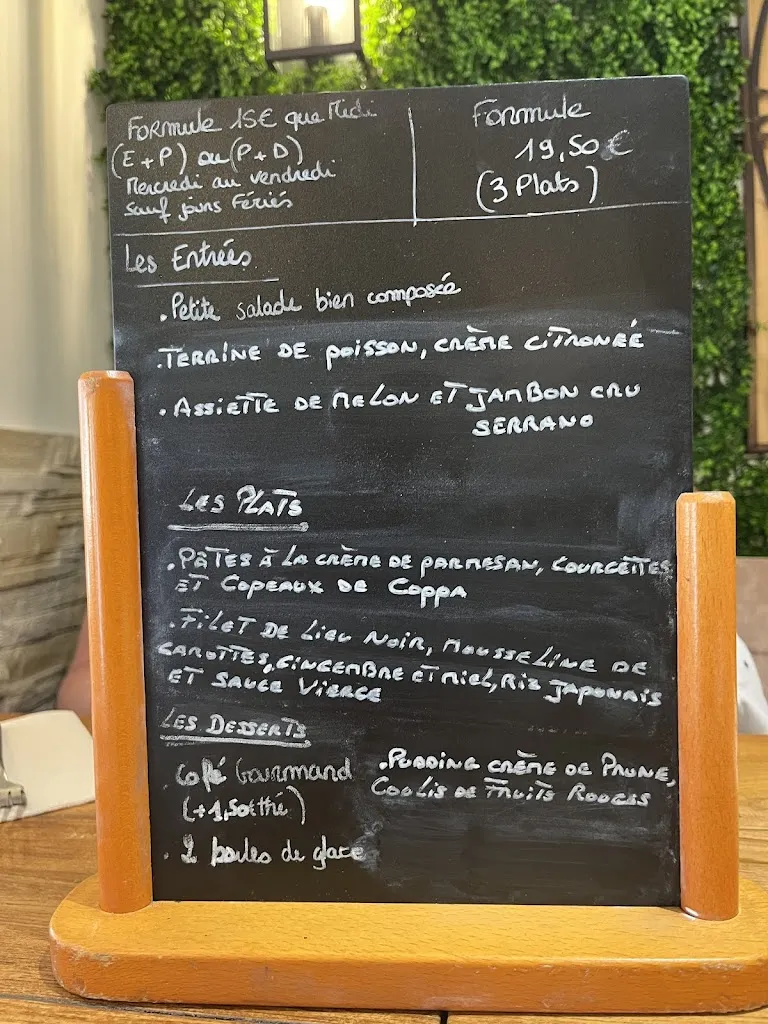 Formule 15€ que Midi
(E+P) ou (P+D)
Mercredi au vendredi
sauf jours Fériés
Formule
19,50€
(3 Plats)
Les Entrées
. Petite salade bien composée
. TERRINE DE POISSON, CRÈME CITRONEÉ
. ASSIETTE DE MELON ET JAMBON CRU
SERRANO
LES PLATS
. PÂTES À LA CRÈME DE PARMESAN, COURGETTES
ET COPEAUX DE COPPA
. FILET DE LIEU NOIR, MOUSSELINE DE
CAROTTES, GINGEMBRE ET MIEL, RIZ JAPONAIS
ET SAUCE VIERGE
LES DESSERTS
. Café Gourmand
(+1,50€ thé)
. 2 boules de glace
. PUDDING CRÈME DE PRUNE,
COULIS DE FRUITS ROUGES